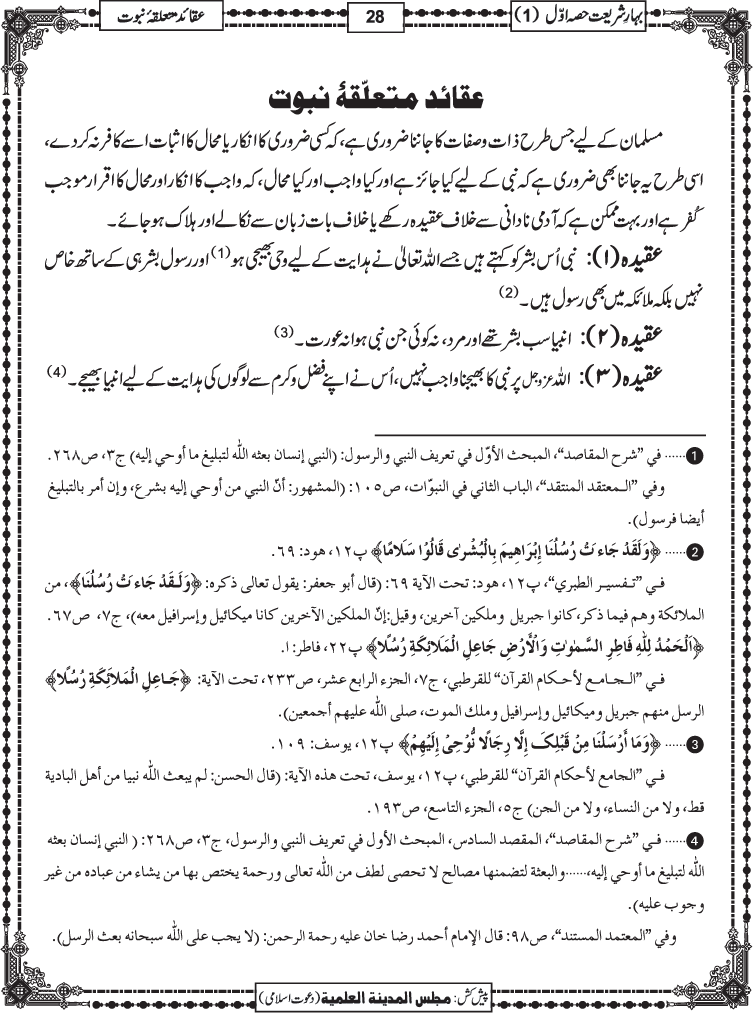 بہارِ شریعت حصہ اوّل (1)
28
عقائد متعلقۂ نبوت
عقائد متعلّقۂ نبوت
مسلمان کے لیے جس طرح ذات و صفات کا جاننا ضروری ہے، کہ کسی ضروری کا انکار یا محال کا اثبات اسے کافر نہ کر دے،
اسی طرح یہ جاننا بھی ضروری ہے کہ نبی کے لیے کیا جائز ہے اور کیا واجب اور کیا محال، کہ واجب کا انکار اور محال کا اقرار موجب
کُفر ہے اور بہت ممکن ہے کہ آدمی نادانی سے خلاف عقیدہ رکھے یا خلاف بات زبان سے نکالے اور ہلاک ہو جائے۔
عقیدہ (۱): نبی اُس بشر کو کہتے ہیں جسے اللہ تعالیٰ نے ہدایت کے لیے وحی بھیجی ہو (1) اور رسول بشر ہی کے ساتھ خاص
نہیں بلکہ ملائکہ میں بھی رسول ہیں۔ (2)
عقیدہ (۲): انبیا سب بشر تھے اور مرد، نہ کوئی جن نبی ہوا نہ عورت۔ (3)
عقیدہ (۳): اللہ عزوجل پر نبی کا بھیجنا واجب نہیں، اُس نے اپنے فضل و کرم سے لوگوں کی ہدایت کے لیے انبیا بھیجے۔ (4)
1 ...... في ”شرح المقاصد“، المبحث الأوّل في تعريف النبي والرسول: (النبي إنسان بعثه الله لتبليغ ما أوحي إليه) ج۳، ص۲٦۸.
وفي ”المعتقد المنتقد“، الباب الثاني في النبوّات، ص۱۰۵: (المشهور: أنّ النبي من أوحي إليه بشرع، وإن أمر بالتبليغ
أيضا فرسول).
2 ...... ﴿وَلَقَدْ جَاءَتْ رُسُلُنَا إِبْرَاهِيمَ بِالْبُشْرٰى قَالُوْا سَلَامًا﴾ پ۱۲، هود: ٦۹.
فـي ”تـفسيـر الطبري“، پ۱۲، هود: تحت الآية ٦۹: (قال أبو جعفر: يقول تعالى ذكره: ﴿وَلَـقَدْ جَاءَتْ رُسُلُنَا﴾، من
الملائكة وهم فيما ذكر، كانوا جبريل وملكين آخرين، وقيل: إنّ الملكين الآخرين كانا ميكائيل وإسرافيل معه)، ج۷، ص٦۷.
﴿اَلْحَمْدُ لِلّٰهِ فَاطِرِ السَّمٰوٰتِ وَالْأَرْضِ جَاعِلِ الْمَلَائِكَةِ رُسُلًا﴾ پ۲۲، فاطر: ۱.
فـي ”الـجـامـع لأحـكام القرآن“ للقرطبي، ج۷، الجزء الرابع عشر، ص۲۳۳، تحت الآية: ﴿جَـاعِلِ الْمَلَائِكَةِ رُسُلًا﴾
الرسل منهم جبريل وميكائيل وإسرافيل وملك الموت، صلى الله عليهم أجمعين).
3 ...... ﴿وَمَا أَرْسَلْنَا مِنْ قَبْلِكَ إِلَّا رِجَالًا نُّوْحِيْ إِلَيْهِمْ﴾ پ۱۲، يوسف: ۱۰۹.
فـي ”الجامع لأحكام القرآن“ للقرطبي، پ۱۲، يوسف، تحت هذه الآية: (قال الحسن: لم يبعث الله نبيا من أهل البادية
قط، ولا من النساء، ولا من الجن) ج۵، الجزء التاسع، ص۱۹۳.
4 ...... فـي ”شرح المقاصد“، المقصد السادس، المبحث الأول في تعريف النبي والرسول، ج۳، ص۲٦۸: ( النبي إنسان بعثه
الله لتبليغ ما أوحي إليه،......والبعثة لتضمنها مصالح لا تحصى لطف من الله تعالى ورحمة يختص بها من يشاء من عباده من غير
وجوب عليه).
وفي ”المعتمد المستند“، ص۹۸: قال الإمام أحمد رضا خان عليه رحمة الرحمن: (لا يجب على الله سبحانه بعث الرسل).
پیش کش: مجلس المدینة العلمیة (دعوت اسلامی)